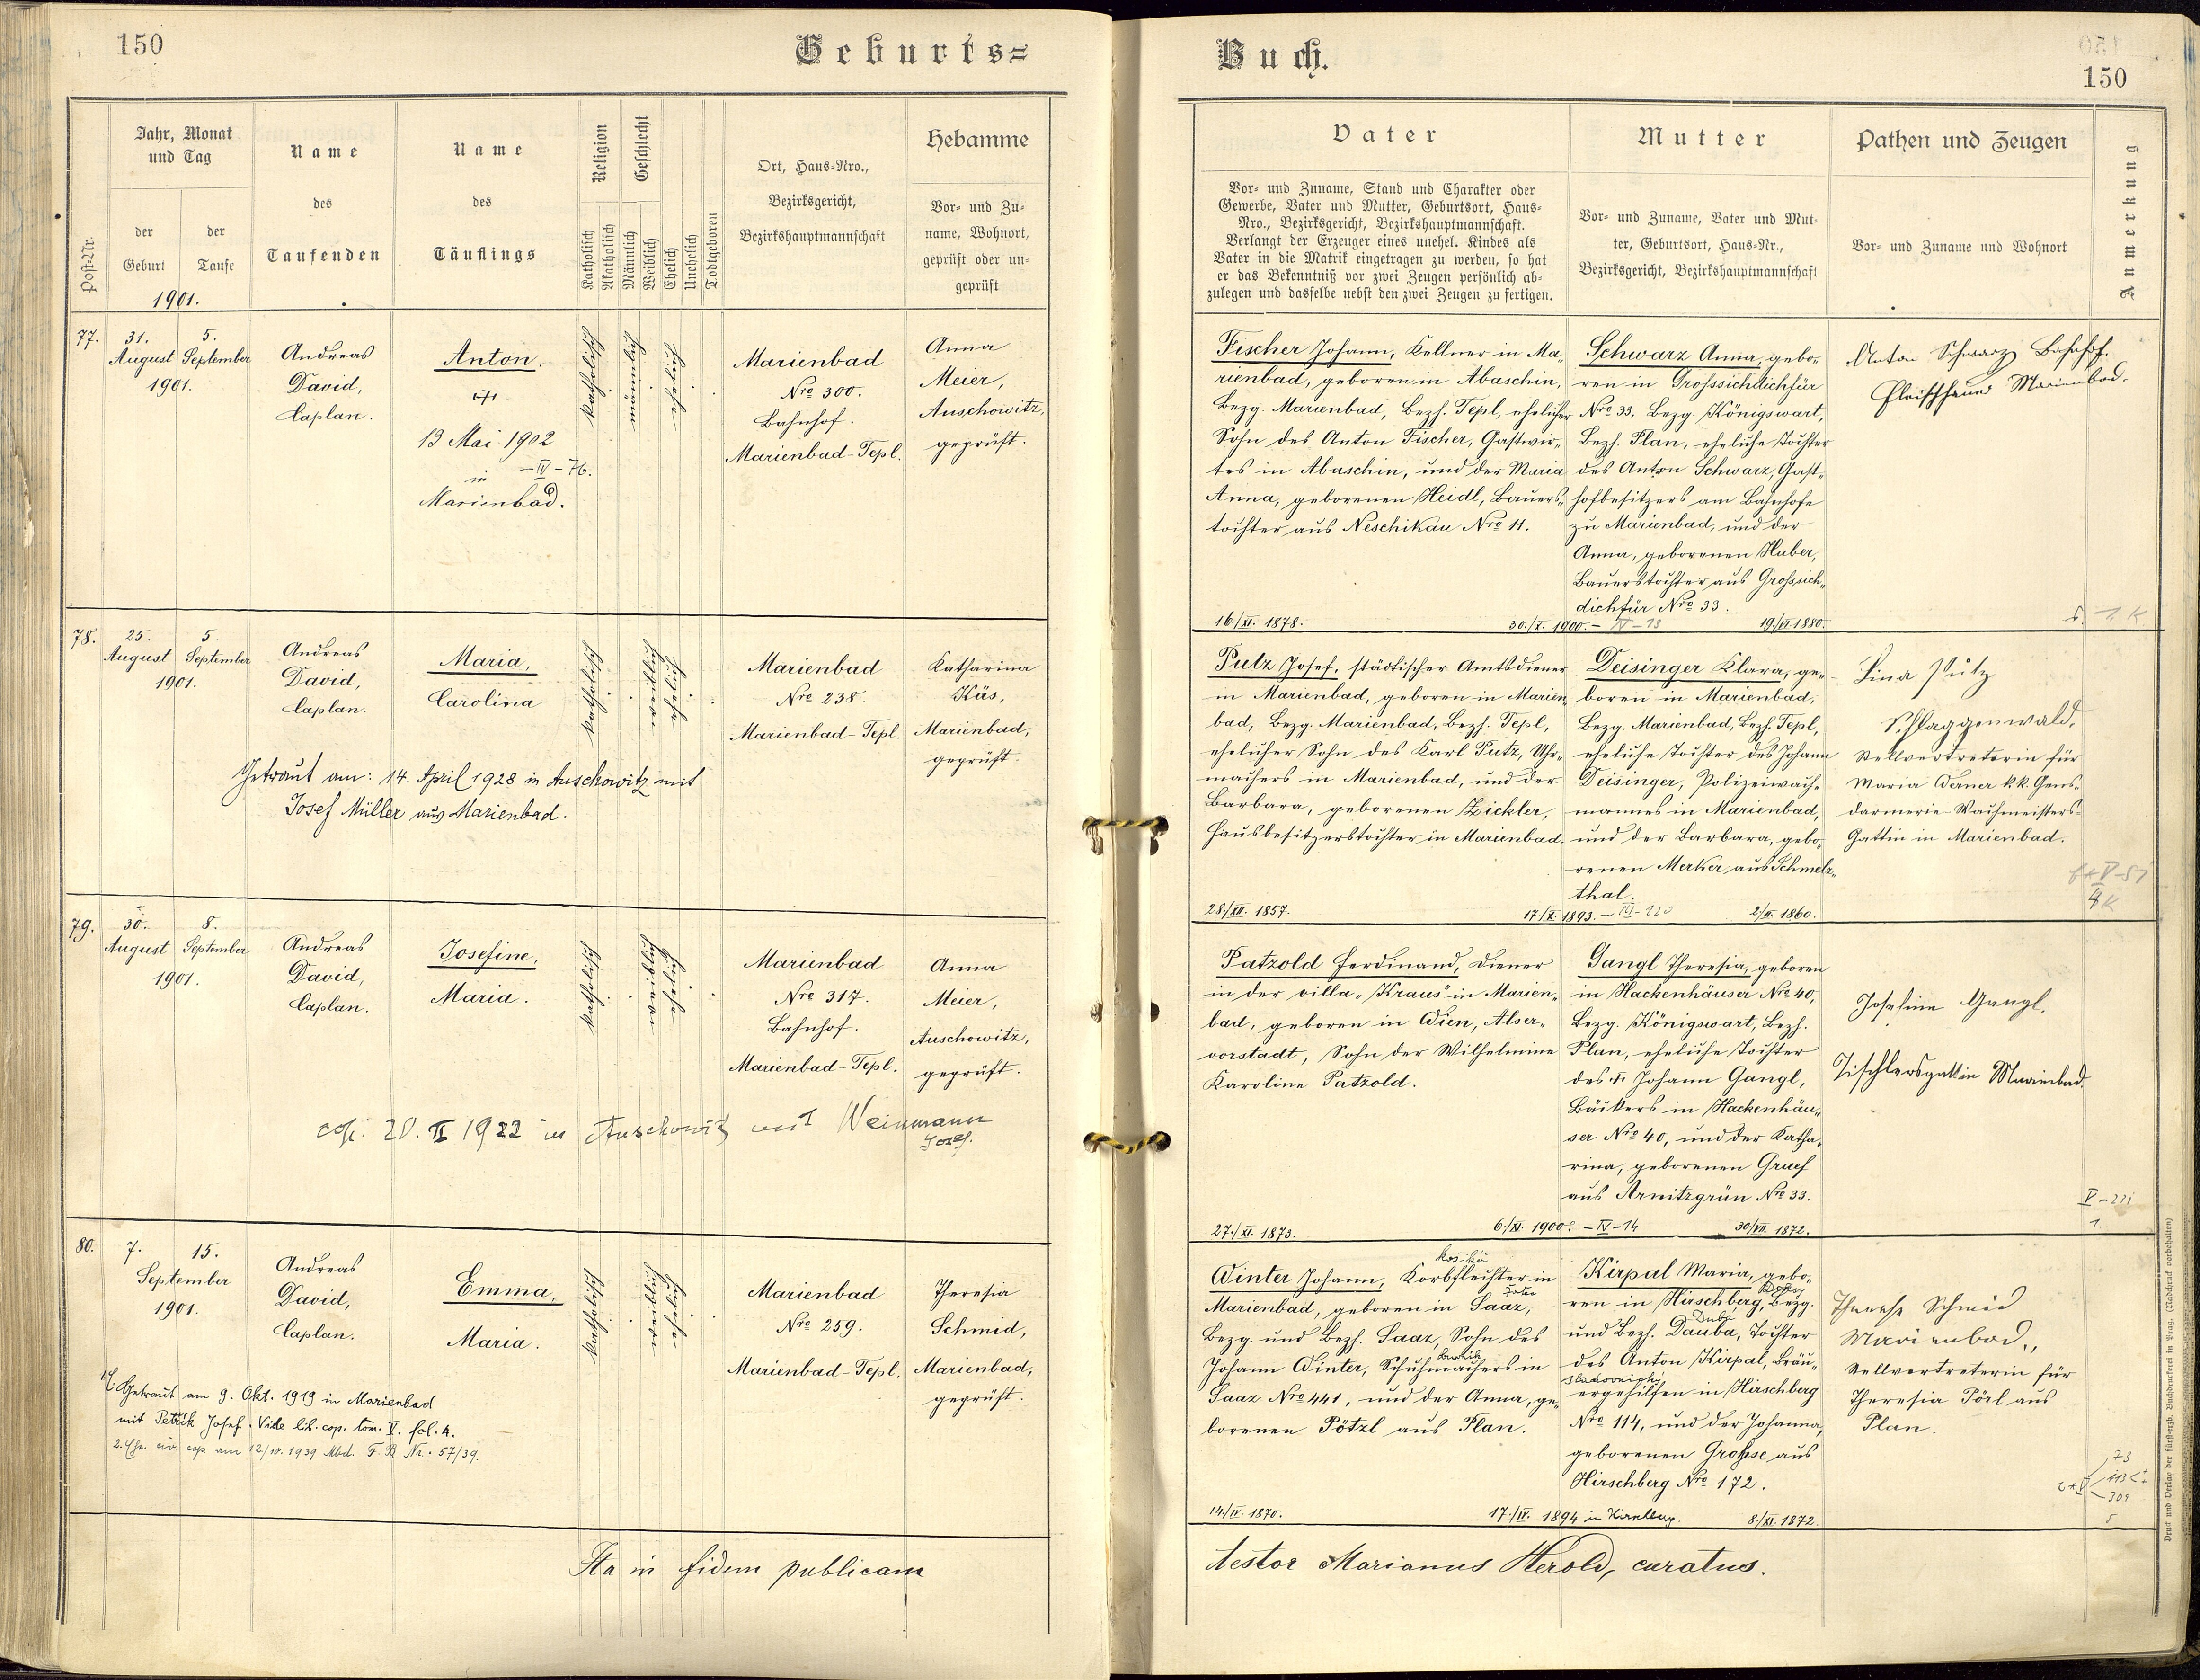 150
Geburts=
Jahr, Monat
und Tag
Name
Name
Religion
Geschlecht
Ort, Haus=Nro.,
Hebamme
Post=Nr.
der
Geburt
der
Taufe
des
Taufenden
des
Täuflings
Katholisch
Akatholisch
Männlich
Weiblich
Ehelich
Unehelich
Todtgeboren
Bezirksgericht,
Bezirkshauptmannschaft
Vor= und Zu=
name, Wohnort,
geprüft oder un=
geprüft
1901.
77.
31.
August
5.
September
1901.
Andreas
David,
Caplan.
Anton.
13 Mai 1902
– IV – 76.
in
Marienbad.
Katholisch
Männlich
Ehelich
Marienbad
Nro 300.
Bahnhof.
Marienbad-Tepl.
Anna
Meier,
Auschowitz,
geprüft.
78.
25.
August
5.
September
1901.
Andreas
David,
Caplan.
Maria,
Carolina
Katholisch
Weiblich
Ehelich
Marienbad
Nro 238.
Marienbad-Tepl.
Katharina
Käs,
Marienbad,
geprüft.
Getraut am: 14. April 1928 in Auschowitz mit
Josef Müller aus Marienbad.
79.
30.
August
8.
September
1901.
Andreas
David,
Caplan.
Josefine,
Maria.
Katholisch
Weiblich
Ehelich
Marienbad
Nro 317.
Bahnhof.
Marienbad-Tepl.
Anna
Meier,
Auschowitz,
geprüft.
cop. 20. II 1922 in Auschowitz mit Weinmann
Josef.
80.
7.
15.
September
1901.
Andreas
David,
Caplan.
Emma,
Maria.
Katholisch
Weiblich
Ehelich
Marienbad
Nro 259.
Marienbad-Tepl.
Theresia
Schmid,
Marienbad,
geprüft.
Getraut am 9. Okt. 1919 in Marienbad
mit Petřik Josef. Vide lib. cop. tom. V. fol. 4.
2. Ehe. civ. cop am 12/IV. 1939 Mbd. F. B Nr. 57/39.
Ita in fidem publicam
Buch.
150
Vater
Mutter
Pathen und Zeugen
Anmerkung
Vor= und Zuname, Stand und Charakter oder
Gewerbe, Vater und Mutter, Geburtsort, Haus=
Nro., Bezirksgericht, Bezirkshauptmannschaft.
Verlangt der Erzeuger eines unehel. Kindes als
Vater in die Matrik eingetragen zu werden, so hat
er das Bekenntniß vor zwei Zeugen persönlich ab=
zulegen und dasselbe nebst den zwei Zeugen zu fertigen.
Vor= und Zuname, Vater und Mut=
ter, Geburtsort, Haus=Nr.,
Bezirksgericht, Bezirkshauptmannschaft
Vor= und Zuname und Wohnort
Fischer Johann, Kellner in Ma=
rienbad, geboren in Abaschin,
Bezg. Marienbad, Bezh. Tepl, ehelicher
Sohn des Anton Fischer, Gastwir=
tes in Abaschin, und der Maria
Anna, geborenen Heidl, Bauers=
tochter aus Neschikau Nro 11.
16./XI. 1878.
30./X. 1900. – IV–13
Schwarz Anna, gebo=
ren in Grosssichdichfür
Nro 33, Bezg. Königswart,
Bezh. Plan, eheliche Tochter
des Anton Schwarz, Gast=
hofbesitzers am Bahnhofe
zu Marienbad, und der
Anna, geborenen Huber,
Bauerstochter aus Grosssich=
dichfür Nro 33.
19./VI. 1880.
Anton Schwarz Bahnhof.
Fleischhauer Marienbad.
1 K
Putz Josef, städtischer Amtsdiener
in Marienbad, geboren in Marien=
bad, Bezg. Marienbad, Bezh. Tepl,
ehelicher Sohn des Karl Putz, Uhr=
machers in Marienbad, und der
Barbara, geborenen Zickler,
Hausbesitzerstochter in Marienbad.
28./XII. 1857.
17./X. 1893.
Deisinger Klara, ge=
boren in Marienbad,
Bezg. Marienbad, Bezh. Tepl,
eheliche Tochter des Johann
Deisinger, Polizeiwach=
mannes in Marienbad,
und der Barbara, gebo=
renen Merker aus Schmelz=
thal.
2/II. 1860.
Lina Putz
Schlaggenwald,
Stellvertreterin für
Maria Werner k.k. Gens=
darmerie-Wachmeisters=
Gattin in Marienbad.
V–51
Patzold Ferdinand, Diener
in der Villa „Kraus“ in Marien=
bad, geboren in Wien, Alser=
vorstadt, Sohn der Wilhelmine
Karoline Patzold.
27./XI. 1873.
6./XI. 1900. – IV–14
Gangl Theresia, geboren
in Hackenhäuser Nro 40,
Bezg. Königswart, Bezh.
Plan, eheliche Tochter
des † Johann Gangl,
Bäckers in Hackenhäu=
ser Nro 40, und der Katha=
rina, geborenen Graef
aus Arnitzgrün Nro 33.
30./VII. 1872.
Josefine Gangl.
Tischlersgattin Marienbad.
1.
košikář
Winter Johann, Korbflechter in
Marienbad, geboren in Saaz,
Bezg. und Bezh. Saaz, Sohn des
Johann Winter, Schuhmachers in
Saaz Nro 441, und der Anna, ge=
borenen Pötzl aus Plan.
14./IV. 1870.
17./IV. 1894 in
Kirpal Maria, gebo=
ren in Hirschberg, Bezg.
Dubá
und Bezh. Dauba, Tochter
des Anton Kirpal, Bräu=
ergehilfen in Hirschberg
Nro 114, und der Johanna,
geborenen Grohsse aus
Hirschberg Nro 172.
8./XI. 1872.
Therese Schmid
Marienbad.,
Stellvertreterin für
Theresia Pörl aus
Plan.
73
113
309
testor Marianus Herold, curatus.
Druck und Verlag der fürst=erzb. Buchdruckerei in Prag. (Nachdruck vorbehalten)